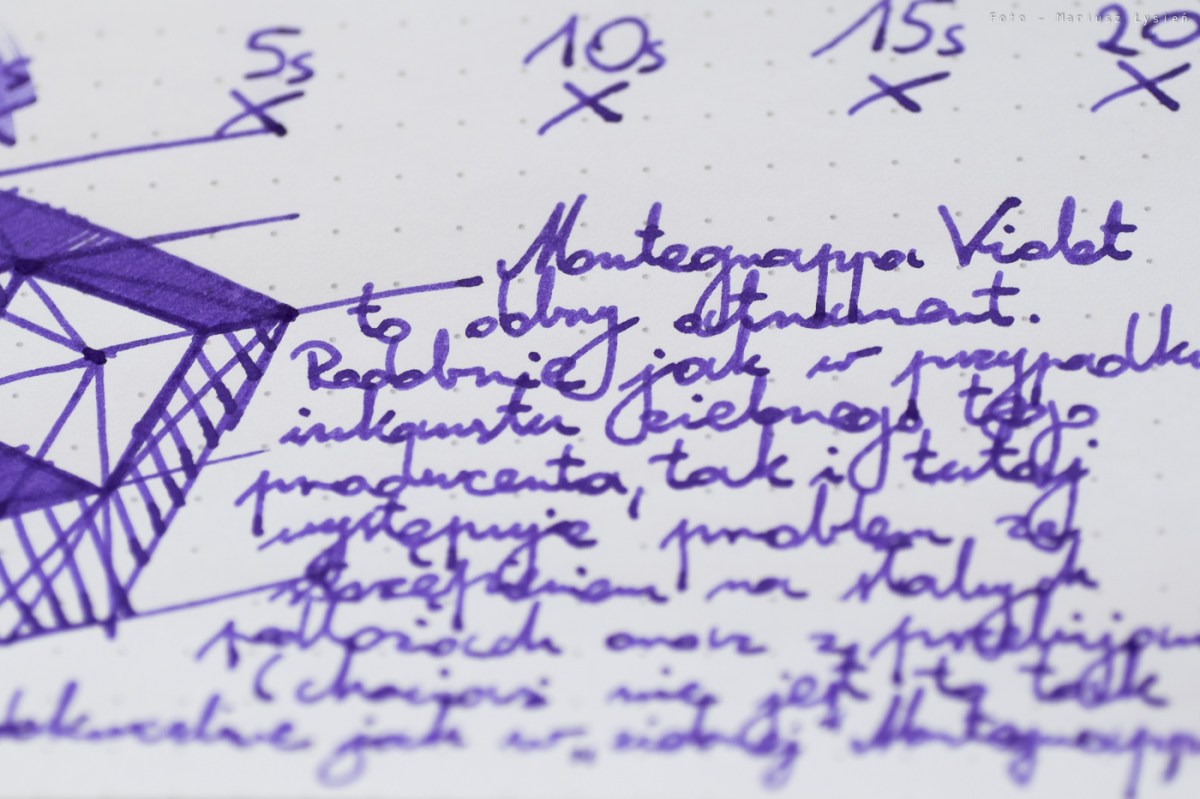 Foto - Mariusz Łysień
5s 10s 15s 20
x x x x
Montegrappa Violet
to dobry atrament.
Podobnie jak w przypadku
inkaustu zielonego tego
producenta, tak i tutaj
występuje problem ze
na słabych
podłożach oraz z przebijaniem
(chociaż nie jest to tak
jak w zielonej Montegrappa